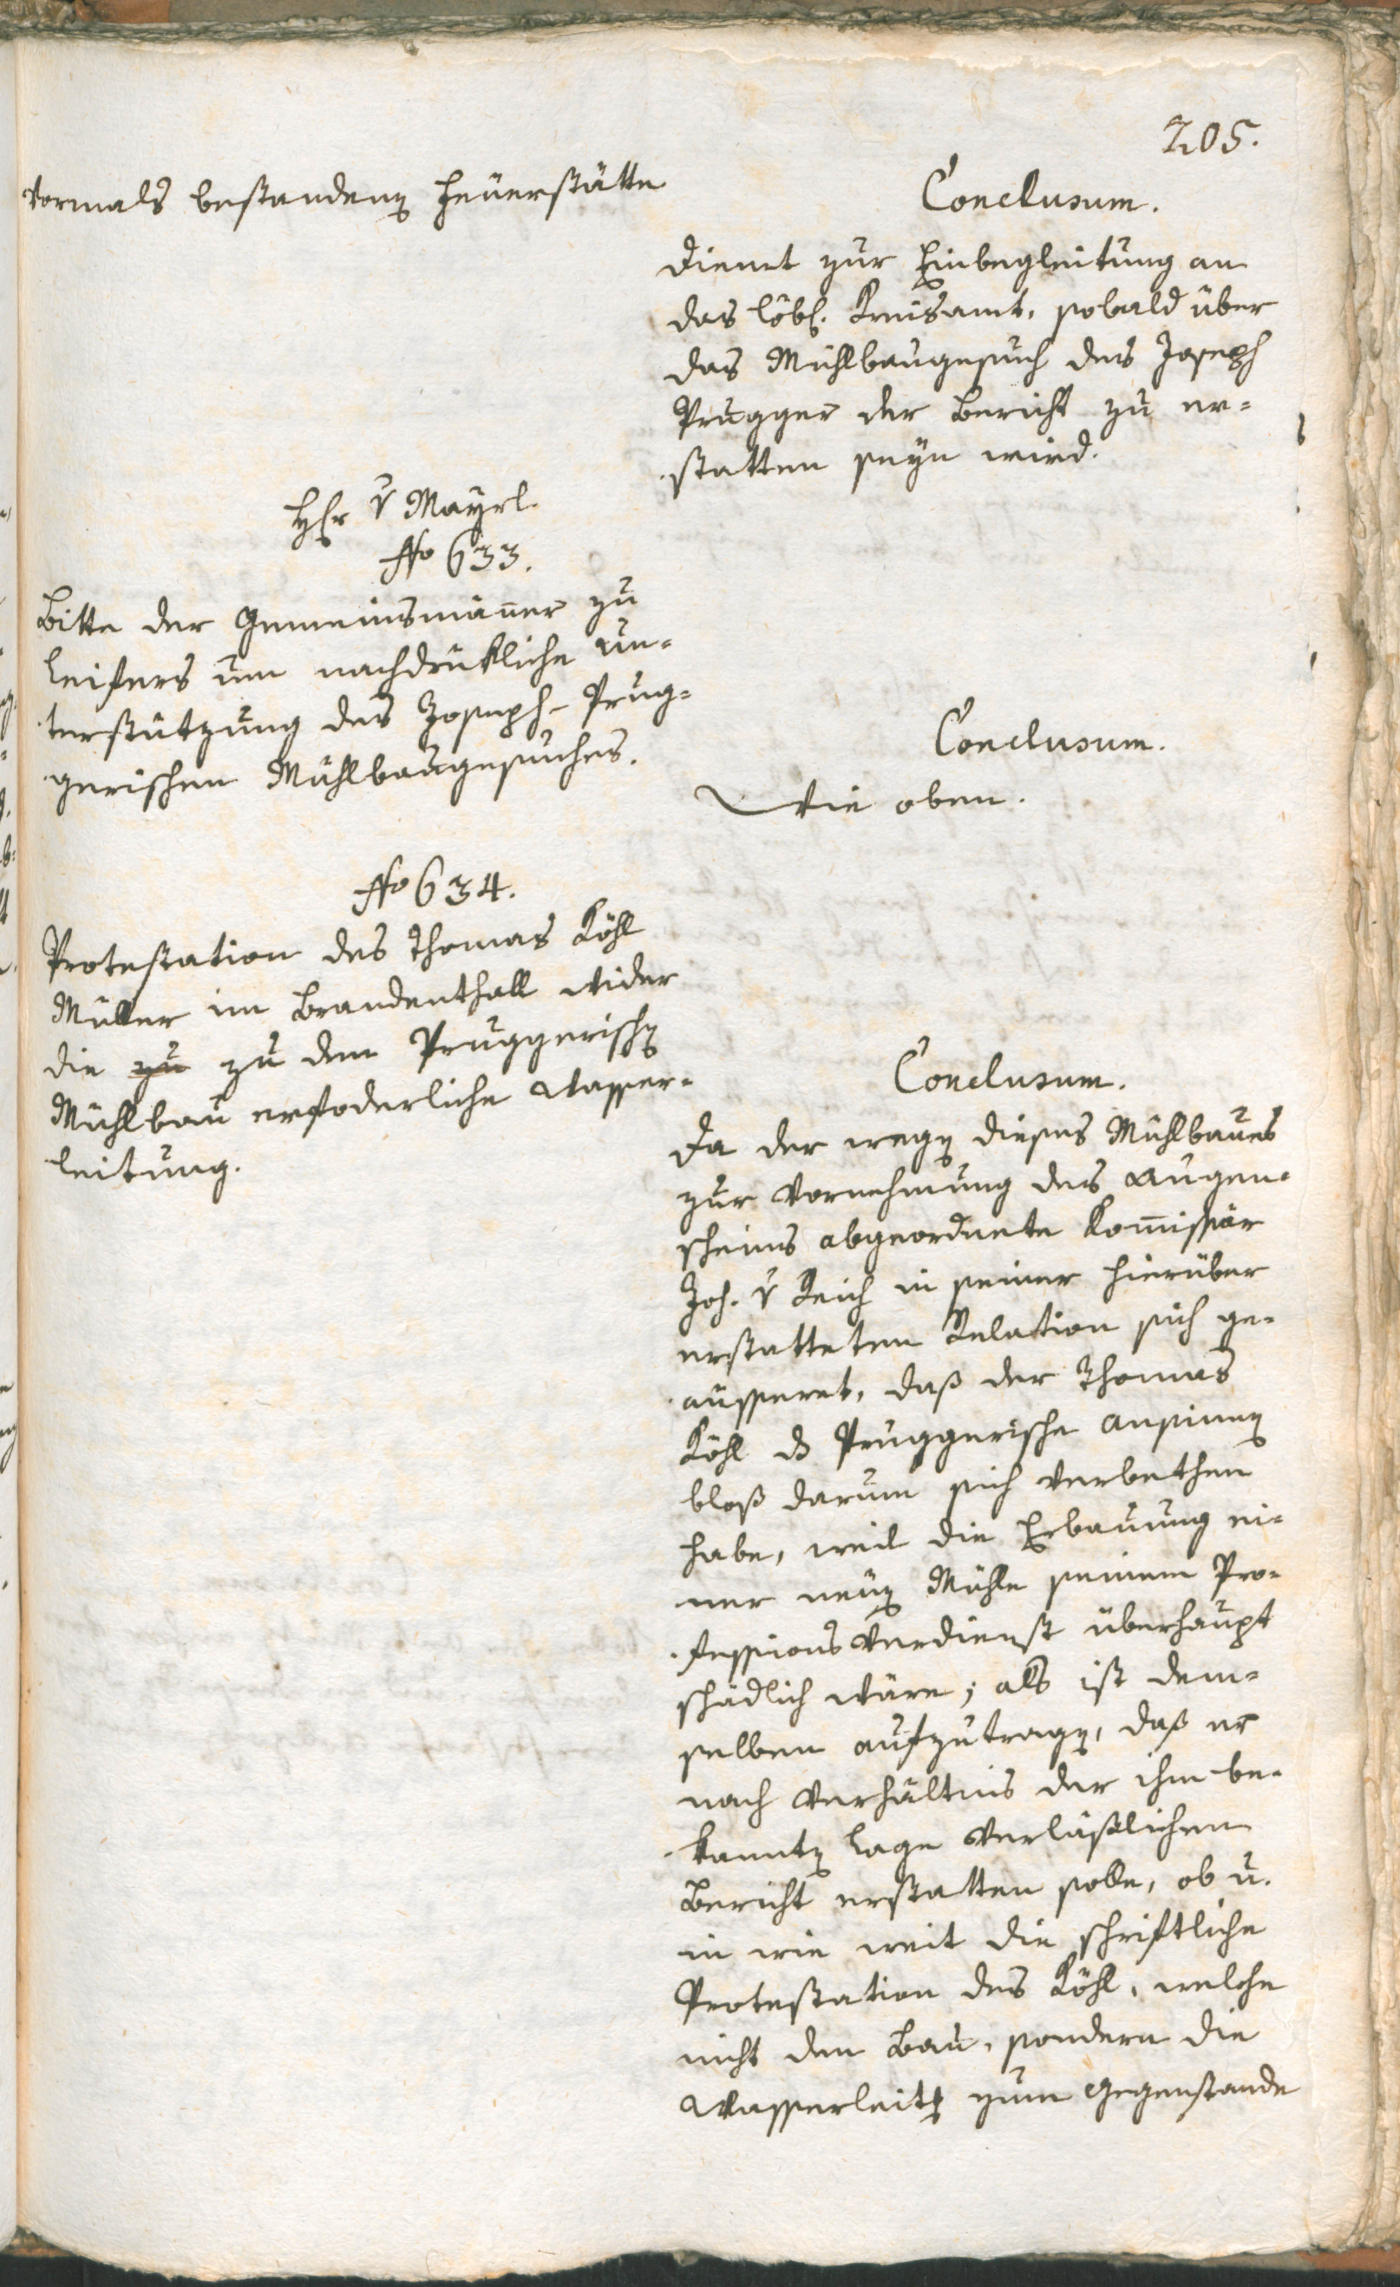 205.
vormals bestandenen Feuerstätte
Conclusum.
Dient zur Einbegleitung an
das löbl. Kreisamt, sobald über
das Mühlbaugesuch des Joseph
Prugger der Bericht zu er=
statten seyn wird.
Hr v Mayrl.
No 633.
Bitte der Gemeinsmäner zu
Leifers um nachdrükliche Un=
terstützung des Joseph-Prug=
gerischen Mühlbaugesuches.
Conclusum.
Wie oben.
No 634.
Protestation des Thomas Köhl
Müller im Brandenthall wider
die zu zu dem Pruggerischen
Mühlbau erfoderliche Wasser=
leitung.
Conclusum.
Da der wegen dieses Mühlbaues
zur Vornehmung des Augen=
scheins abgeordnete Komissär
Joh. v Reich in seiner hierüber
erstatteten Relation sich ge=
äusseret, daß der Thomas
Köhl das Pruggerische Ansinen
bloß darum sich verbethen
habe, weil die Erbauung ei=
ner neuen Mühle seinem Pro=
fessions Verdienst überhaupt
schädlich wäre; als ist dem=
selben aufzutragen, daß er
nach Verhältnis der ihm be=
kannten Lage verläßlichen
Bericht erstatten solle, ob u.
in wie weit die schriftliche
Protestation des Köhl, welche
nicht den Bau, sondern die
Wasserleitung zum Gegenstande